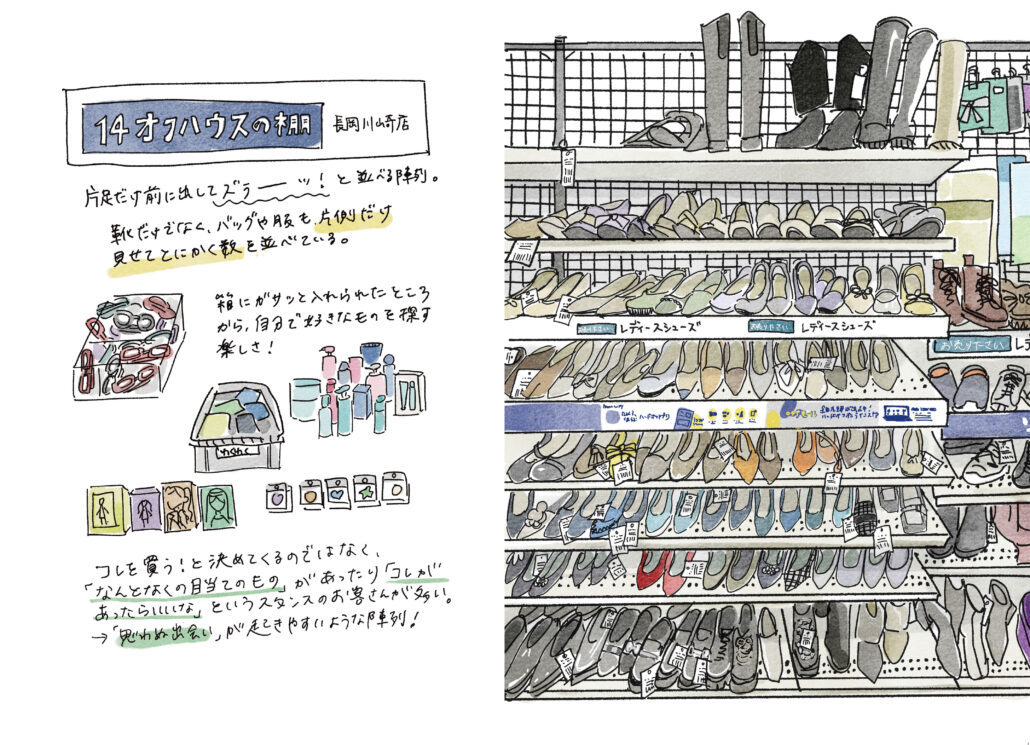 14 オフハウスの棚 長岡川崎店
片足だけ前に出してズラーーッ！と並べる陣列。
靴だけでなく、バッグや服も片側だけ
見せてとにかく数を並べている。
箱にガサッと入れられたところ
から、自分で好きなものを探す
楽しさ！
わくわく
コレを買う！と決めてくるのではなく、
「なんとなくの目当てのもの」があったり「コレが
あったらいいな」というスタンスのお客さんが多い。
→「思わぬ出会い」が起きやすいような陣列！
お売りください レディースシューズ
お売りください レディースシューズ
お売りください レデ